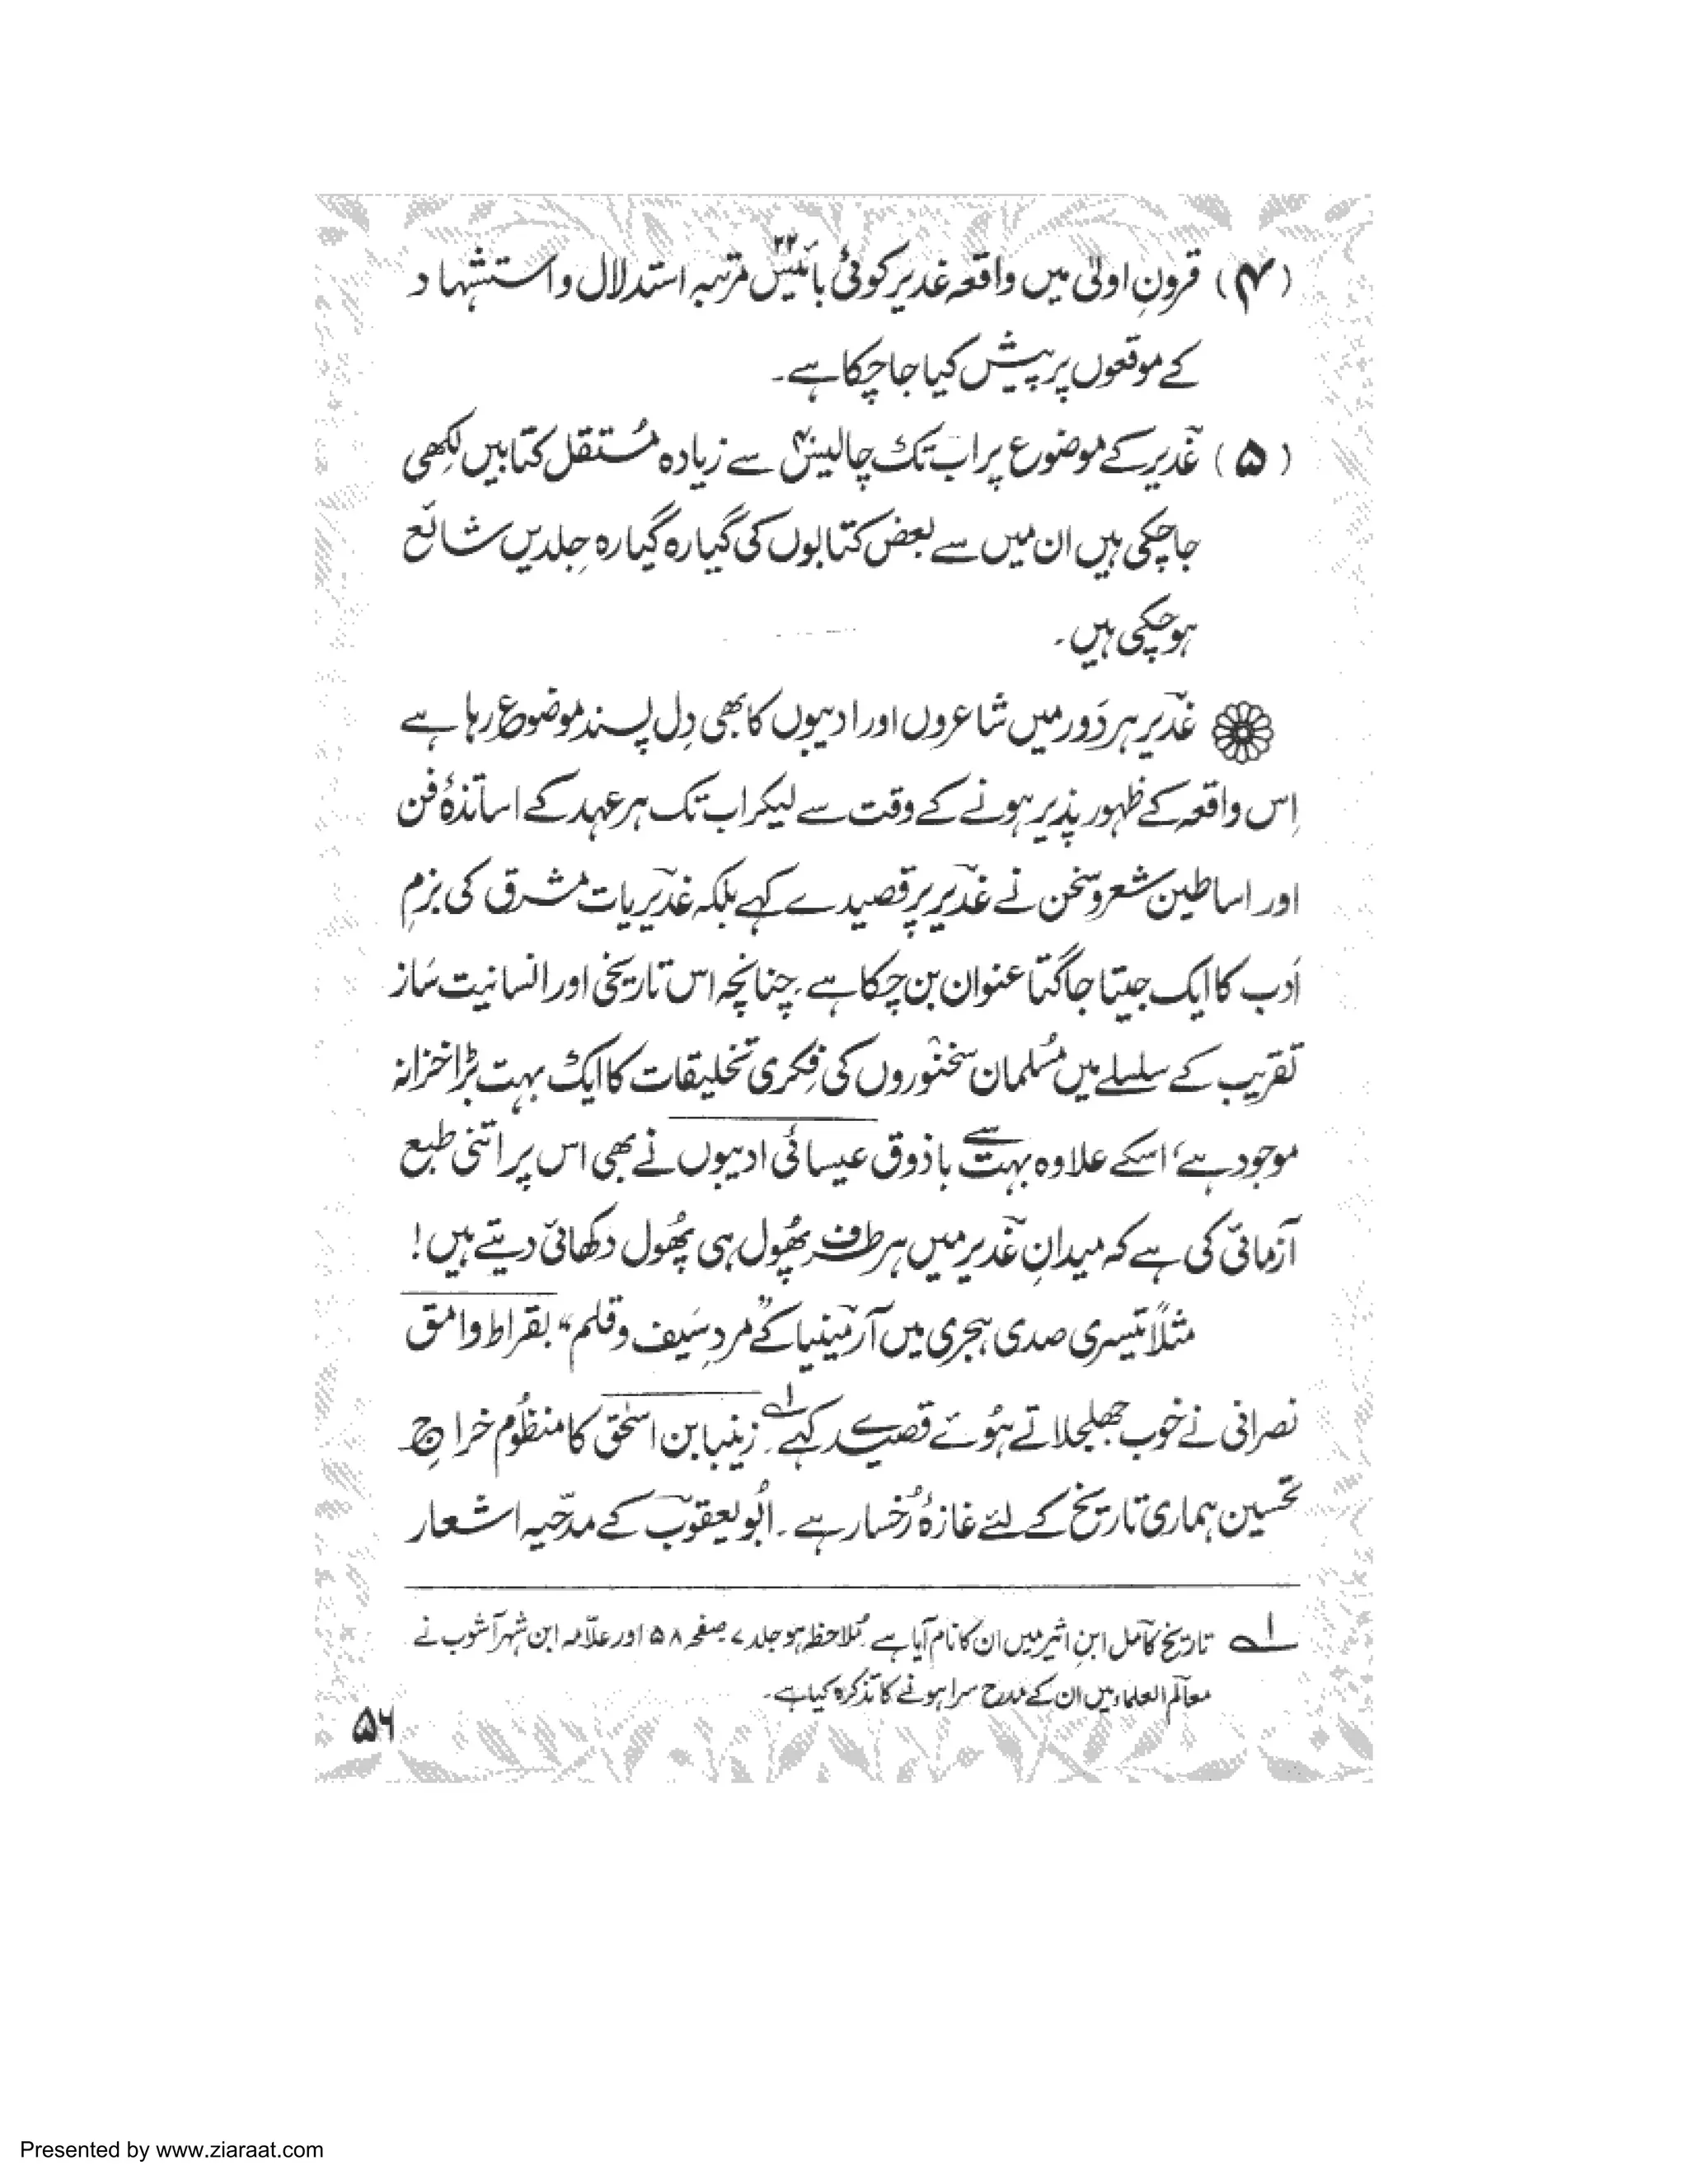 (۴) قرونِ اولیٰ میں واقعہ غدیر کوئی بائیس۲۲ مرتبہ استدلال و استشہاد
کے موقعوں پر پیش کیا جا چکا ہے۔
(۵) غدیر کے موضوع پر اب تک چالیس۴۰ سے زیادہ مُستقل کتابیں لکھی
جا چکی ہیں ان میں سے بعض کتابوں کی گیارہ گیارہ جِلدیں شائع
ہو چکی ہیں۔
غدیر ہر دَور میں شاعروں اور ادیبوں کا بھی دِل پسند موضوع رہا ہے
اِس واقعہ کے ظہور پذیر ہونے کے وقت سے لیکر اب تک ہر عہد کے اساتذۂ فن
اور اساطین شعر و سخن نے غدیر پر قصیدے کہے بلکہ غدیریات مشرق کی بزمِ
اَدب کا ایک جیتا جاگتا عنوان بن چکا ہے۔ چنانچہ اس تاریخی اور انسانیت سَاز
تقریب کے سلسلے میں مُسلمان سخنوروں کی فِکری تخلیقات کا ایک بہت بڑا خزانہ
موجود ہے، اسکے علاوہ بہت سے باذوق عیسائی ادیبوں نے بھی اس پر اتنی طبع
آزمائی کی ہے کہ میدانِ غدیر میں ہر طرف پھُول ہی پھُول دکھائی دیتے ہیں!
مثلاً تیسری صدی ہجری میں آرمینیا کے "مردِ سَیف و قلم" بقراط وامق
نصرانی نے خوب جھلجھلاتے ہُوئے قصیدے کہے۱؎۔ زینبا بن اسحٰق کا منظوم خراجِ
تحسین ہماری تاریخ کے لئے غازۂ رُخسار ہے۔ ابُو یعقوب کے مدحیہ اشعار
۱؎ تاریخ کامل ابنِ اثیر میں ان کا نام آیا ہے۔ مُلاحظہ ہو جلد ۷ صفحہ ۵۸ اور علّامہ ابن شہر آشوب نے
معالم العلماء میں ان کے مدح سرا ہونے کا تذکرہ کیا ہے۔
۵۶
Presented by www.ziaraat.com